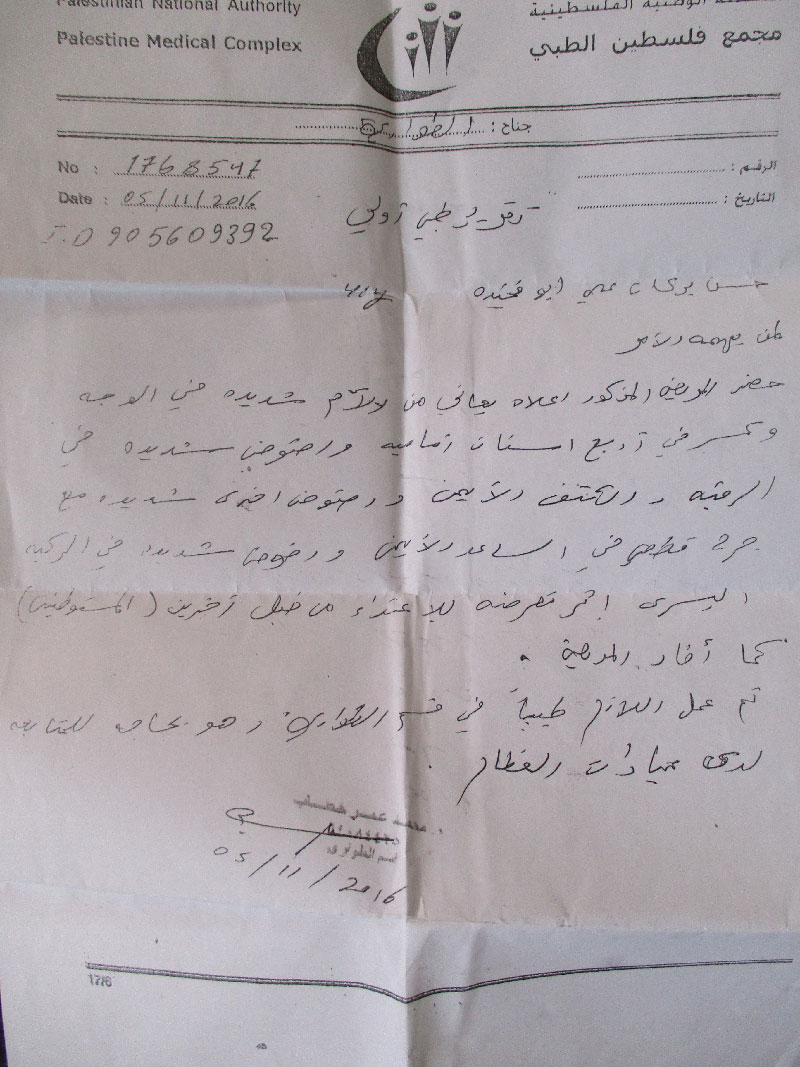 Palestinian National Authority
Palestine Medical Complex
الوطنية الفلسطينية
مجمع فلسطين الطبي
جناح : الطوارئ
No : 1768547
Date : 05/11/2016
I.D 905609392
الرقم :
التاريخ :
تقرير طبي أولي
حسن بركات علي ابو
لمن يهمه الأمر
حضر المريض المذكور اعلاه يعاني من آلام شديده في الوجه
وكسر في أربع اسنان أماميه ورضوض شديده في
الرقبه والكتف الأيمن ورضوض اخرى شديده مع
جرح قطعي في الساعد الأيمن ورضوض شديده في الركبه
اليسرى اثر تعرضه للإعتداء من قبل آخرين (المستوطنين)
كما أفاد المريض .
تم عمل اللازم طبياً في قسم الطوارئ وهو بحاجه للمتابعه
لدى عيادات العظام .
محمد عمر
قسم الطوارئ
05/11/2016